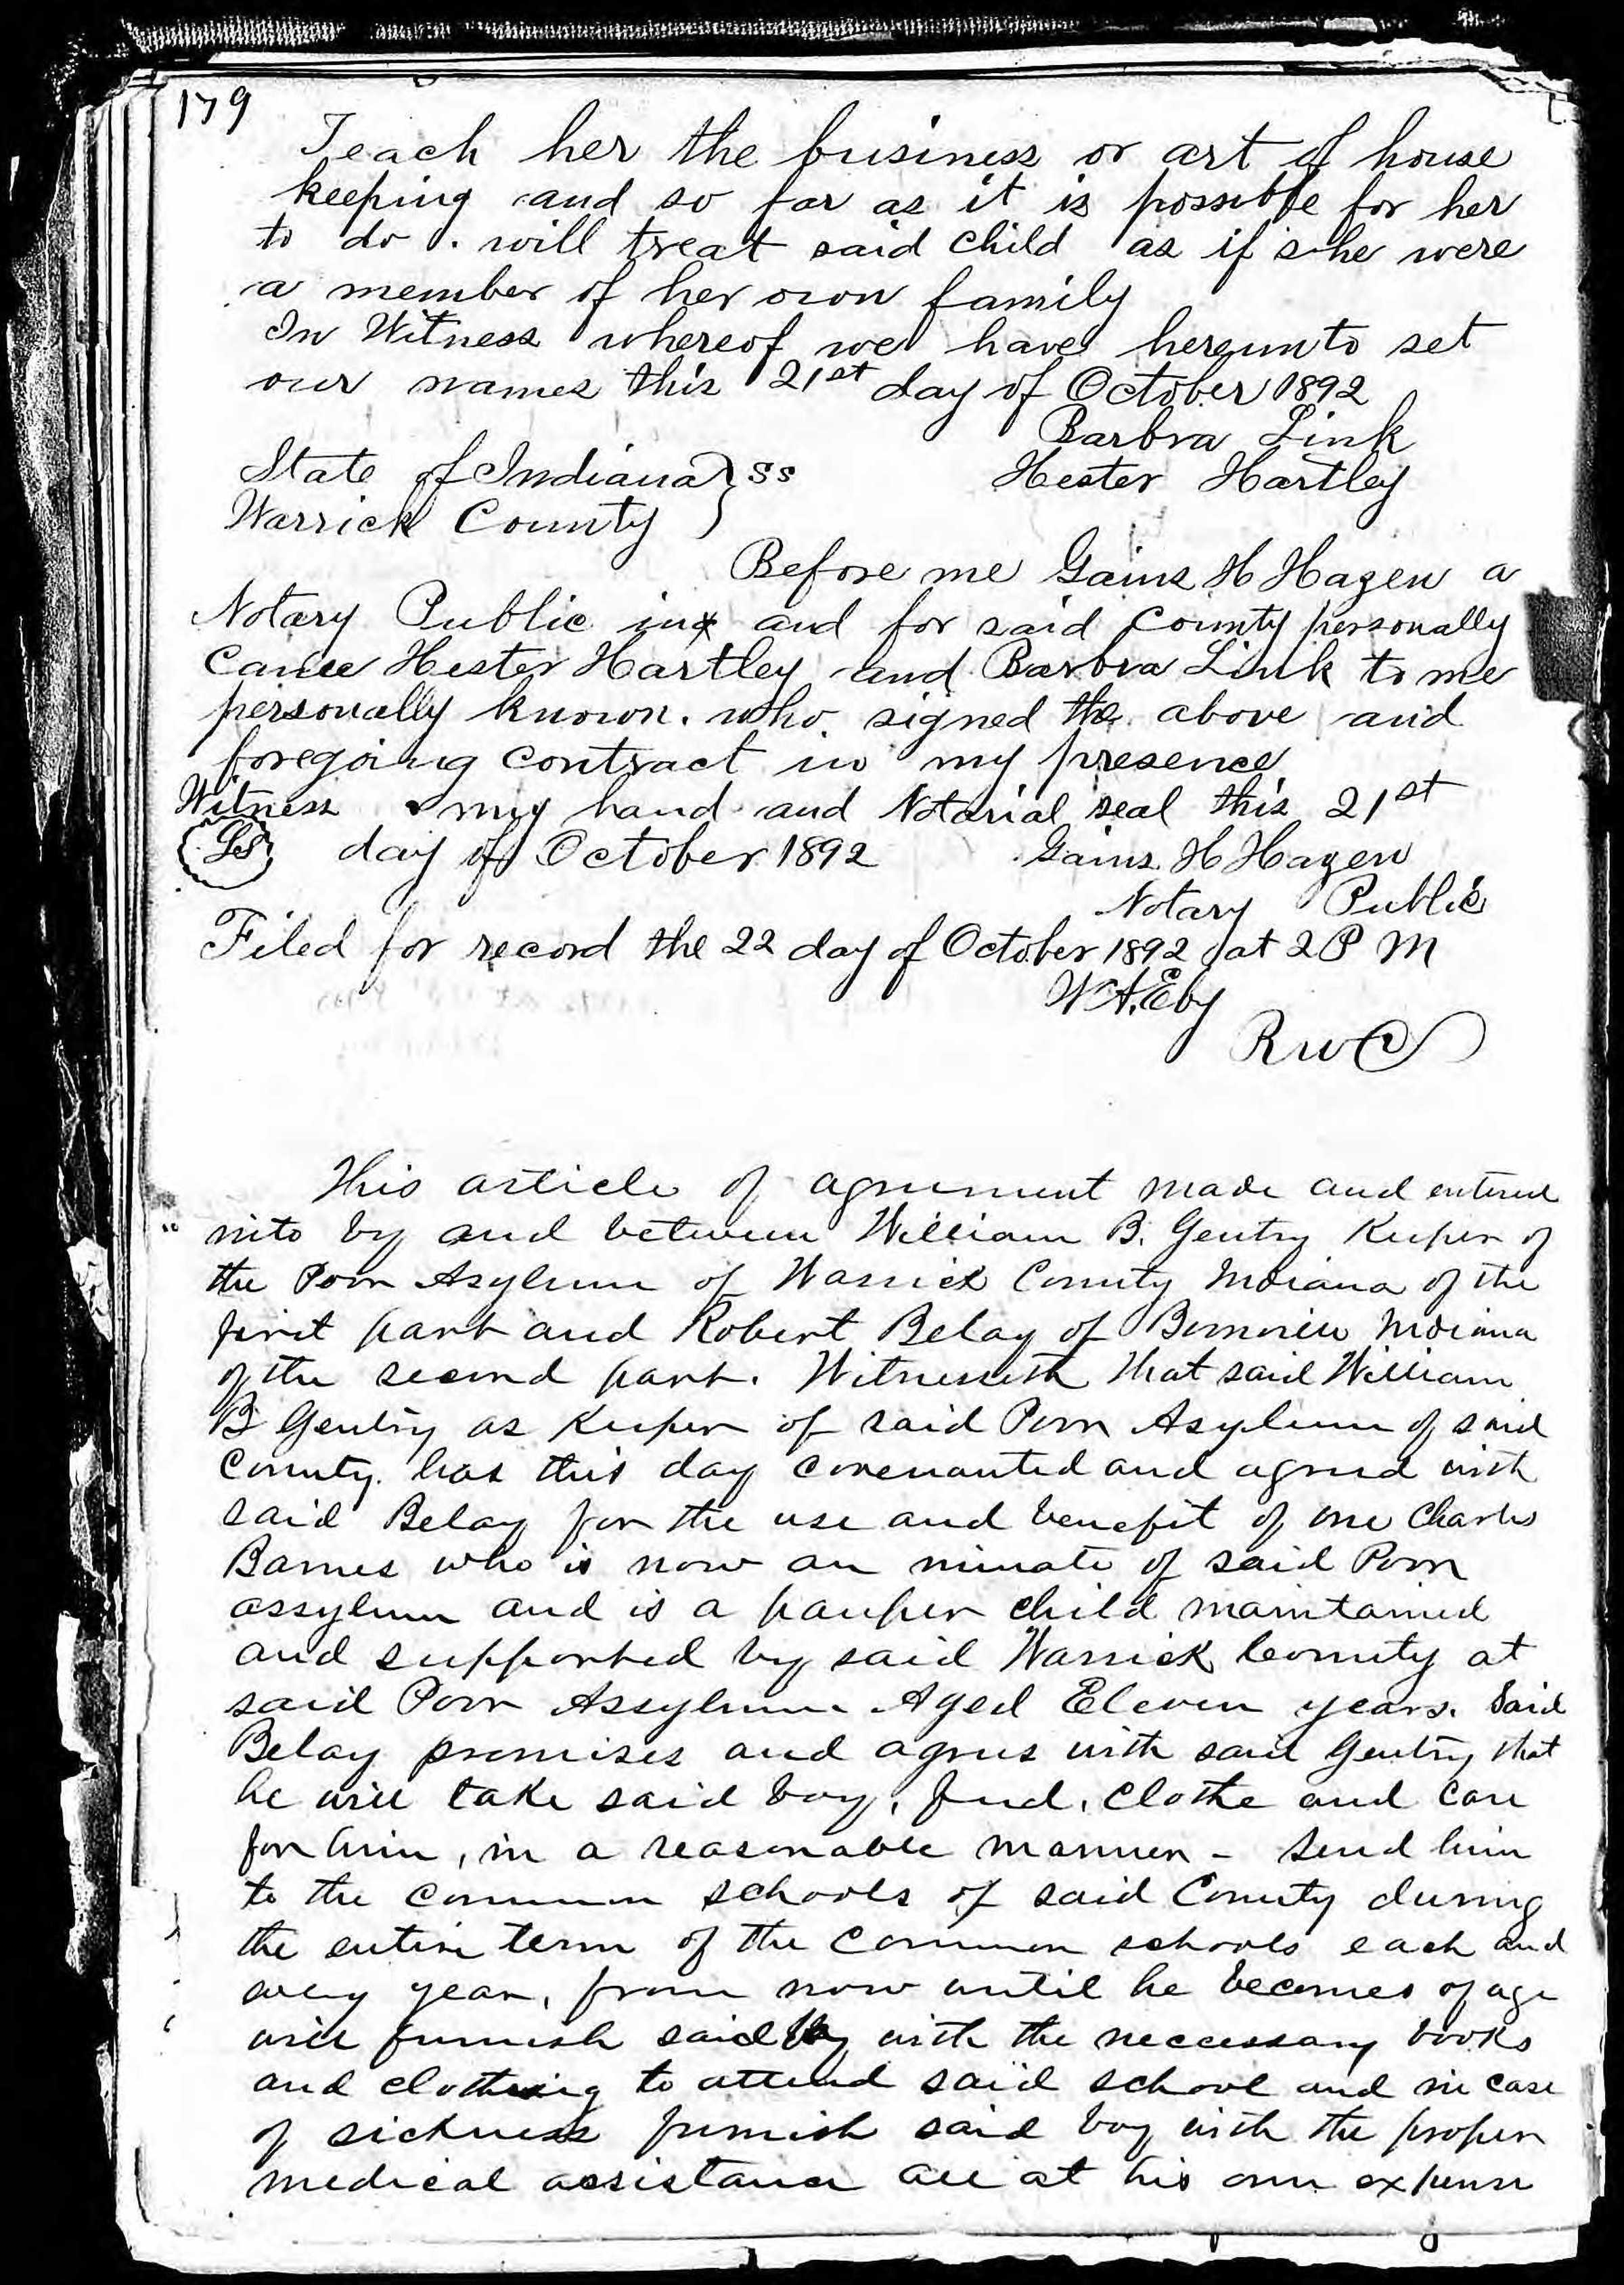 179
Teach her the business or art of house
keeping and so far as it is possible for her
to do. will treat said child as if she were
a member of her own family
In Witness whereof we have hereunto set
our names this 21st day of October 1892
Barbra Link
State of Indiana } ss Hester Hartley
Warrick County
Before me Gains H Hazen a
Notary Public in and for said County personally
came Hester Hartley and Barbra Link to me
personally known. who signed the above and
foregoing contract in my presence
Witness my hand and Notarial seal this 21st
LS day of October 1892 Gains H Hazen
Notary Public
Filed for record the 22 day of October 1892 at 2 P M
W A. Eby
RWC
This article of agreement made and entered
into by and between William B. Gentry Keeper of
the Poor Asylum of Warrick County Indiana of the
first part and Robert Belay of Indiana
of the second part. Witnesseth that said William
B Gentry as Keeper of said Poor Asylum of said
County. has this day covenanted and agreed with
said Belay for the use and benefit of one Charles
Barnes who is now an inmate of said Poor
assylum and is a pauper child maintained
and supported by said Warrick County at
said Poor Assylum Aged Eleven years. Said
Belay promises and agrees with said Gentry that
he will take said boy, feed, clothe and care
for him, in a reasonable manner - send him
to the common schools of said County during
the entire term of the common schools each and
every year, from now until he becomes of age
will furnish said boy with the necessary books
and clothing to attend said school and in case
of sickness furnish said boy with the proper
medical assistance all at his own expense